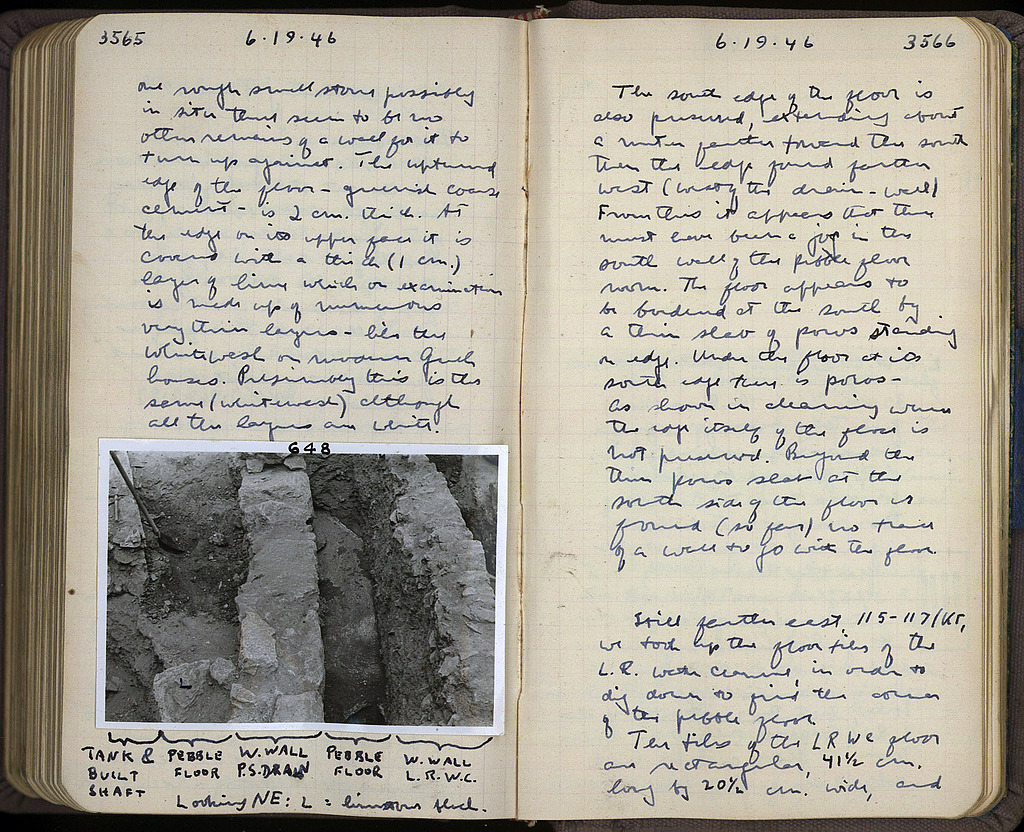 3565 6·19·46
one rough small stone possibly
in situ there seem to be no
other remains of a wall for it to
turn up against. The upturned
edge of the floor – greenish coarse
cement – is 2 cm. thick. At
the edge on its upper face it is
covered with a thick (1 cm.)
layer of lime which on examination
is made up of numerous
very thin layers – like the
whitewash on modern Greek
houses. Presumably this is the
same (whitewash) although
all the layers are white.
648
L
TANK & BUILT SHAFT
PEBBLE FLOOR
W. WALL P.S. DRAIN
PEBBLE FLOOR
W. WALL L.R.W.C.
Looking NE: L = limestone
6·19·46 3566
The south edge of the floor is
also preserved, extending about
a meter farther toward the south
than the edge found farther
west (west of the drain-wall)
From this it appears that there
must have been a jog in the
south wall of the pebble floor
room. The floor appears to
be bordered at the south by
a thin slab of poros standing
on edge. Under the floor at its
south edge there is poros –
as shown in cleaning where
the top itself of the floor is
not preserved. Beyond the
thin poros slab at the
south side of the floor is
found (so far) no trace
of a wall to go with the floor.
Still farther east, 115-117/ΚΓ,
we took up the floor tiles of the
L.R. water channel, in order to
dig down to find the corner
of the pebble floor.
The tiles of the LRWC floor
are rectangular, 41½ cm.
long by 20½ cm. wide, and